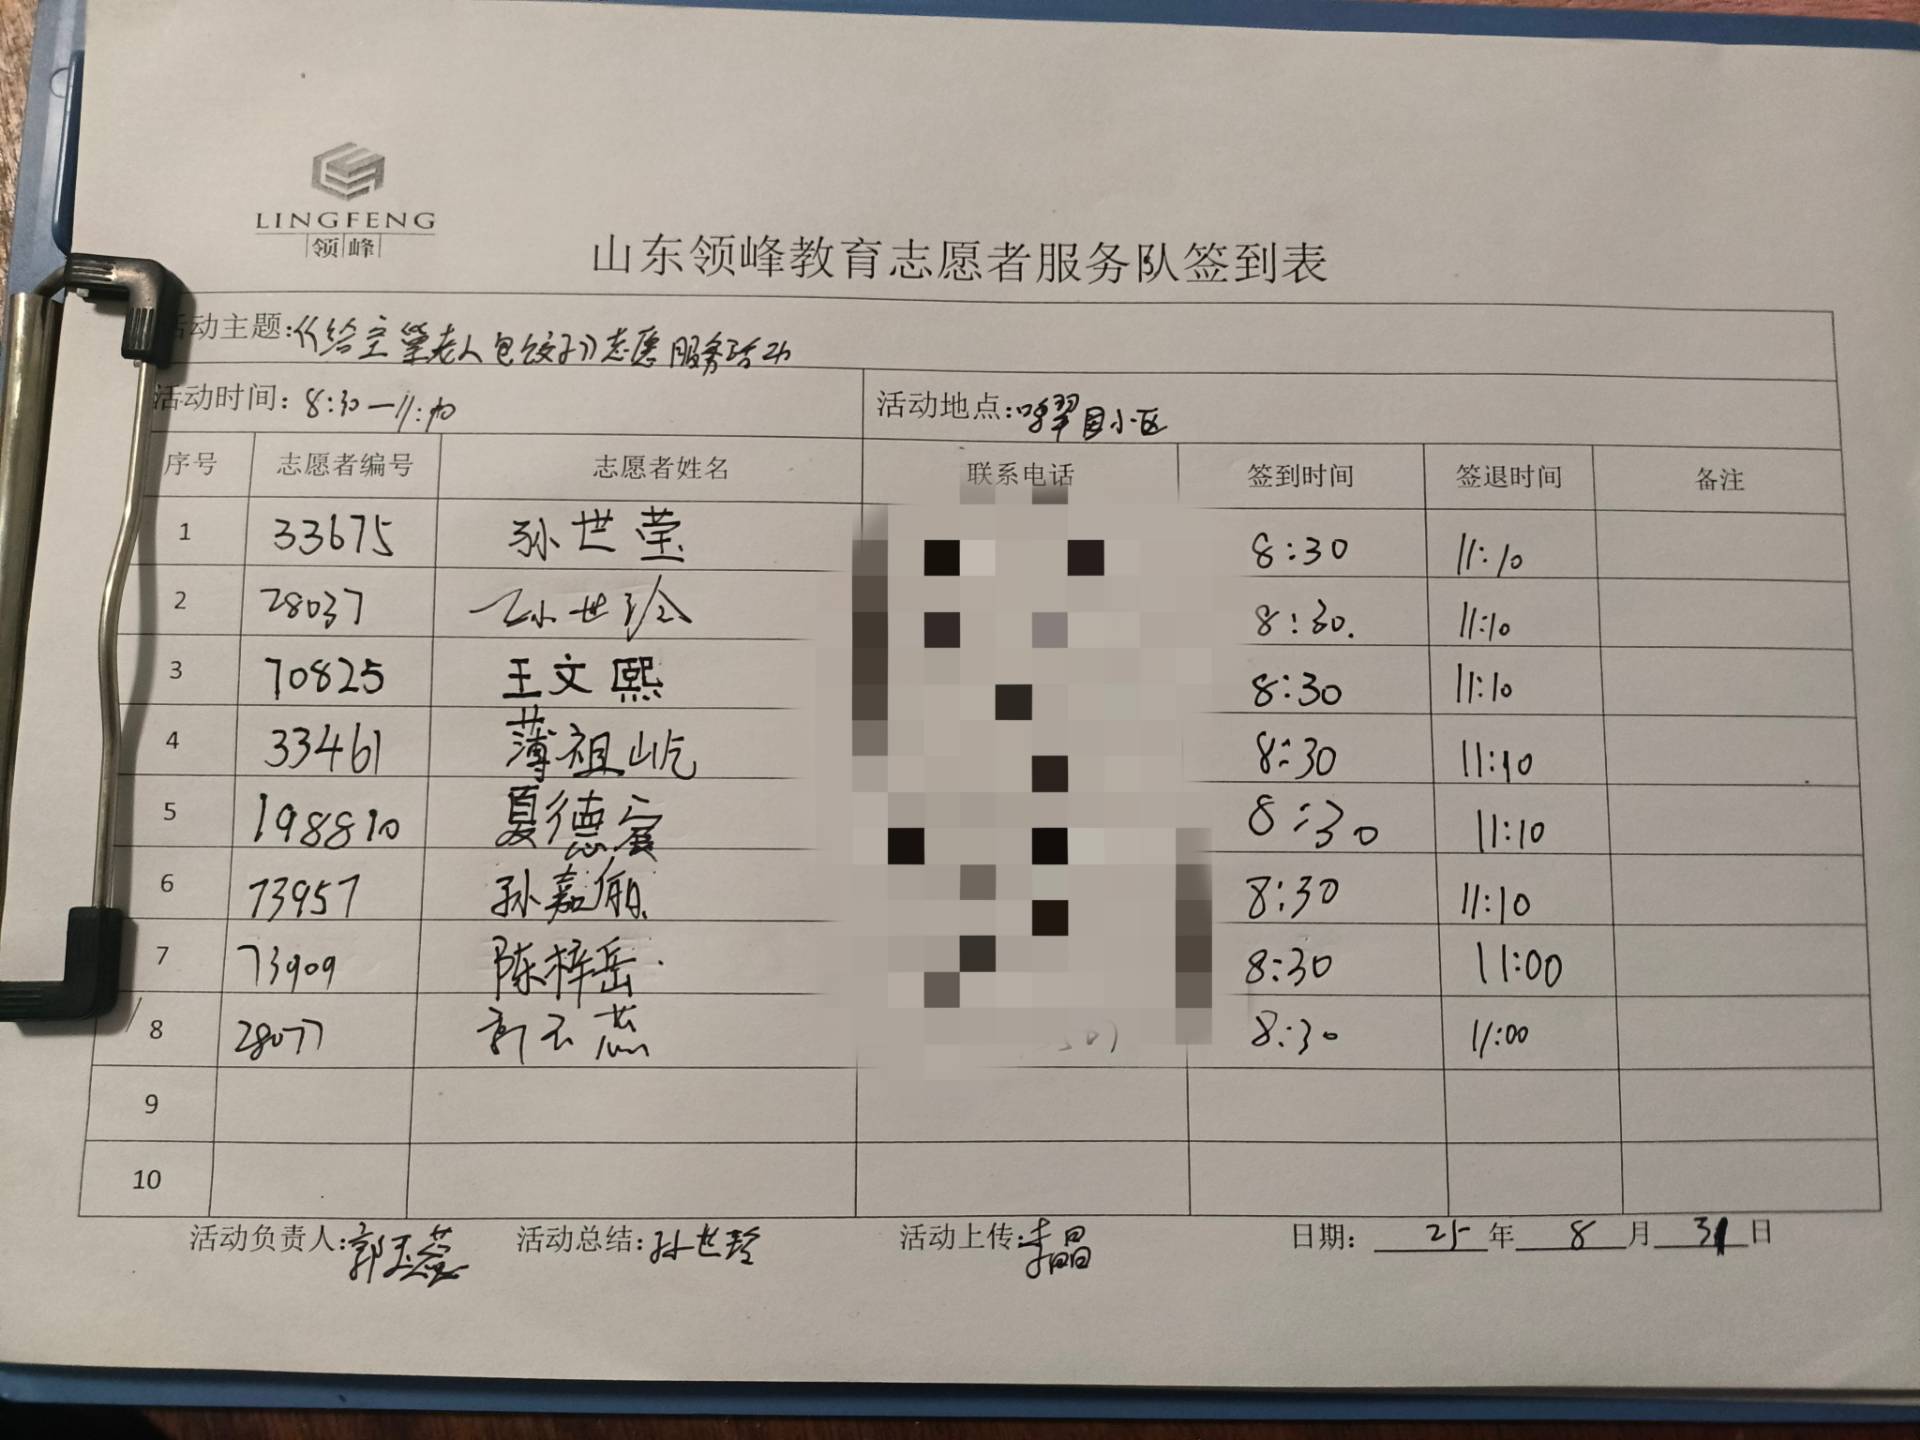 LINGFENG
领峰
山东领峰教育志愿者服务队签到表
活动主题:《给空巢老人包饺子》志愿服务活动
活动时间: 8:30—11:10 活动地点: 小区
序号 志愿者编号 志愿者姓名 联系电话 签到时间 签退时间 备注
1 33675 孙世莹 8:30 11:10
2 28037 孙世玲 8:30. 11:10
3 70825 王文熙 8:30 11:10
4 33461 薄祖屹 8:30 11:10
5 198810 夏德 8:30 11:10
6 73957 孙嘉 8:30 11:10
7 73909 陈梓岳 8:30 11:00
8 28077 郭玉蕊 8:30 11:00
9
10
活动负责人:郭玉蕊 活动总结:孙世玲 活动上传:李晶 日期: 25 年 8 月 31 日